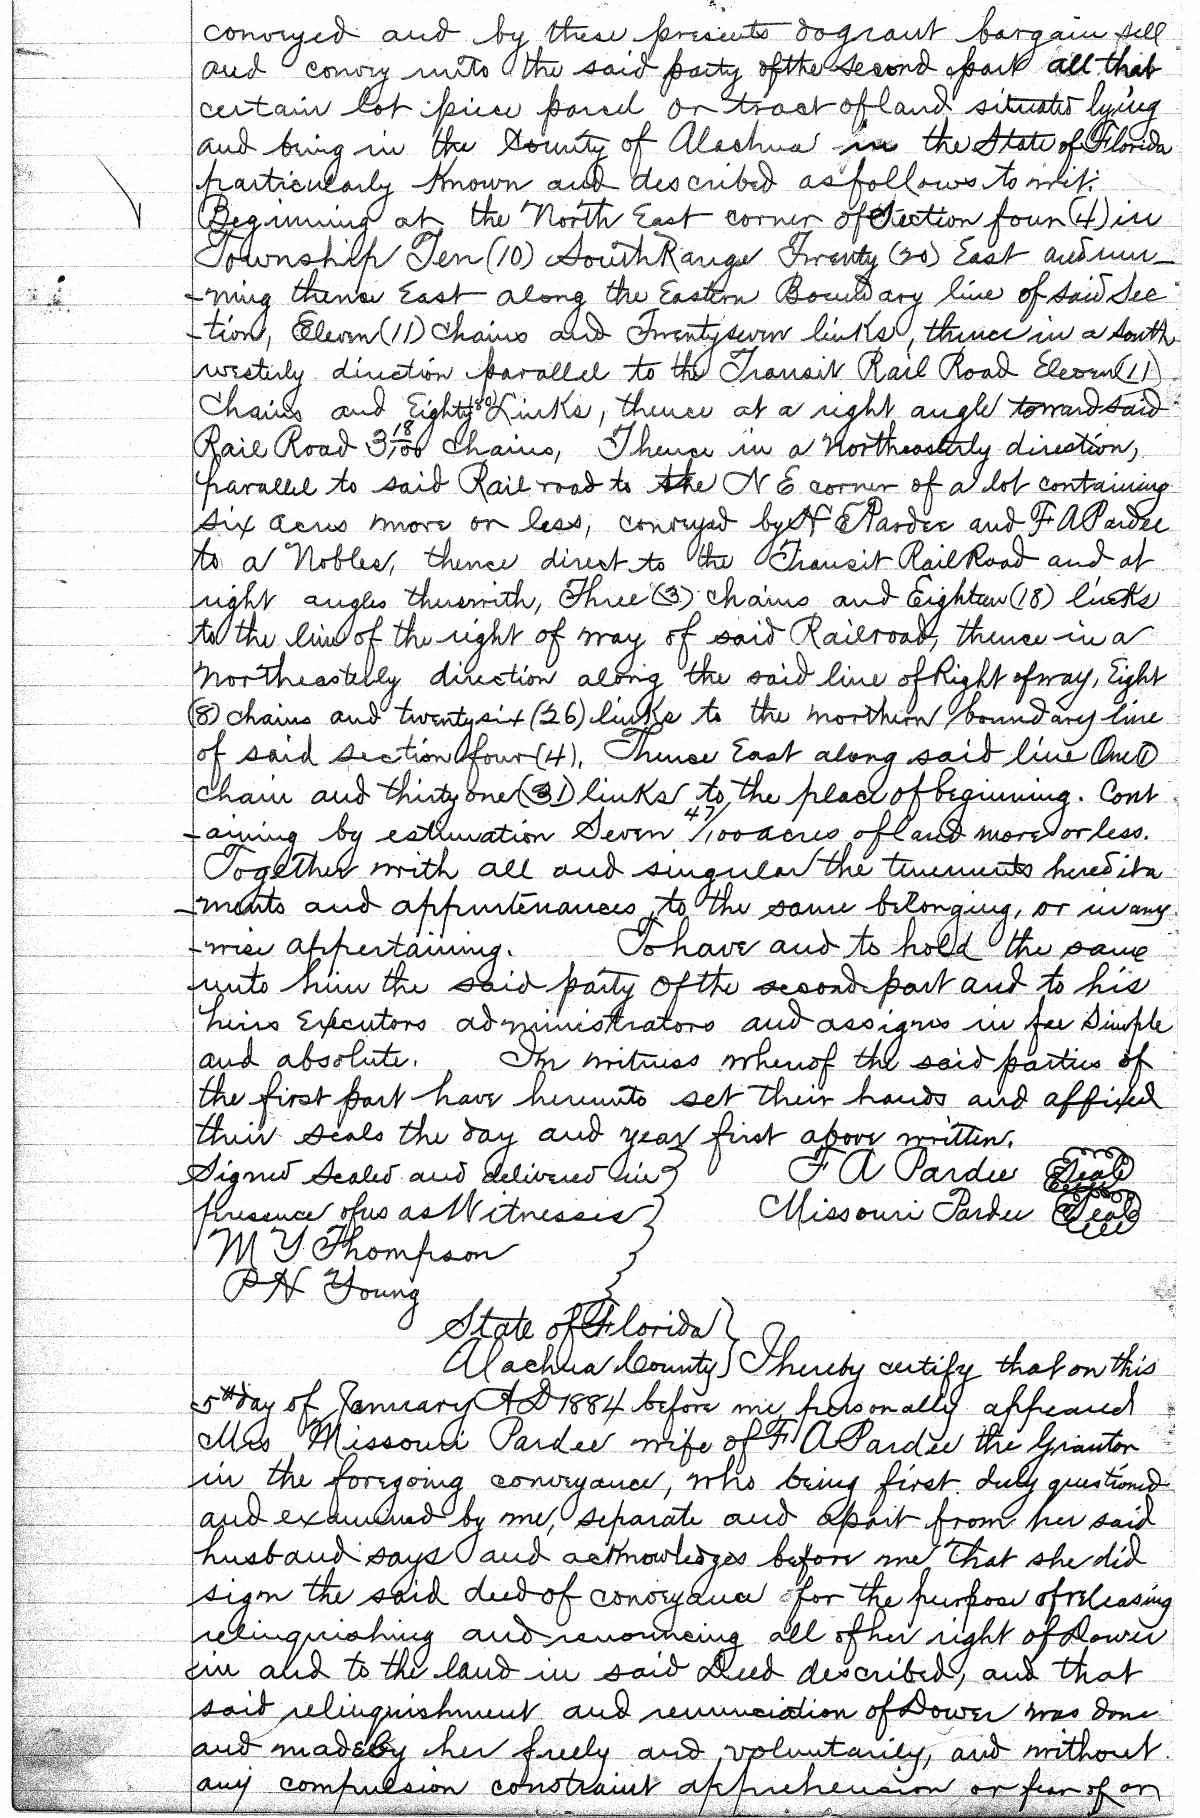 conveyed and by these presents do grant bargain sell
and convey unto the said party of the second part all that
certain lot piece parcel or tract of land situated lying
and being in the County of Alachua in the State of Florida
particularly known and described as follows to wit:
Beginning at the North East corner of Section four (4) in
Township Ten (10) South Range Twenty (20) East and run-
-ning thence East along the Eastern Boundary line of said Sec
-tion, Eleven (11) Chains and Twenty seven links, thence in a South
westerly direction parallel to the Transit Rail Road Eleven (11)
Chains and Eighty (80) Links, thence at a right angle toward said
Rail Road 3 18/100 Chains, Thence in a Northeasterly direction,
parallel to said Rail road to the N E corner of a lot containing
six acres more or less, conveyed by N E Pardee and F A Pardee
to A Nobles, thence direct to the Transit Rail Road and at
right angles therewith, Three (3) chains and Eighteen (18) links
to the line of the right of way of said Railroad, thence in a
Northeasterly direction along the said line of Right of way, Eight
(8) chains and twenty six (26) links to the northern boundary line
of said section four (4). Thence East along said line One (1)
chain and thirty one (31) links to the place of beginning. Cont
-aining by estimation Seven 47/100 acres of land more or less.
Together with all and singular the tenements heredita
-ments and appurtenances to the same belonging, or in any
-wise appertaining. To have and to hold the same
unto him the said party of the second part and to his
heirs Executors administrators and assigns in fee Simple
and absolute. In witness whereof the said parties of
the first part have hereunto set their hands and affixed
their seals the day and year first above written.
Signed Sealed and delivered in } F A Pardee (Seal)
presence of us as Witnesses } Missouri Pardee (Seal)
M Y Thompson
P H Young
State of Florida }
Alachua County } I hereby certify that on this
5th day of January A D 1884 before me personally appeared
Mrs Missouri Pardee wife of F A Pardee the Grantor
in the foregoing conveyance, who being first duly questioned
and examined by me, separate and apart from her said
husband says and acknowledges before me that she did
sign the said deed of conveyance for the purpose of releasing
relinquishing and renouncing all of her right of Dower
in and to the land in said Deed described, and that
said relinquishment and renunciation of Dower was done
and made by her freely and voluntarily, and without
any compulsion constraint apprehension or fear of or